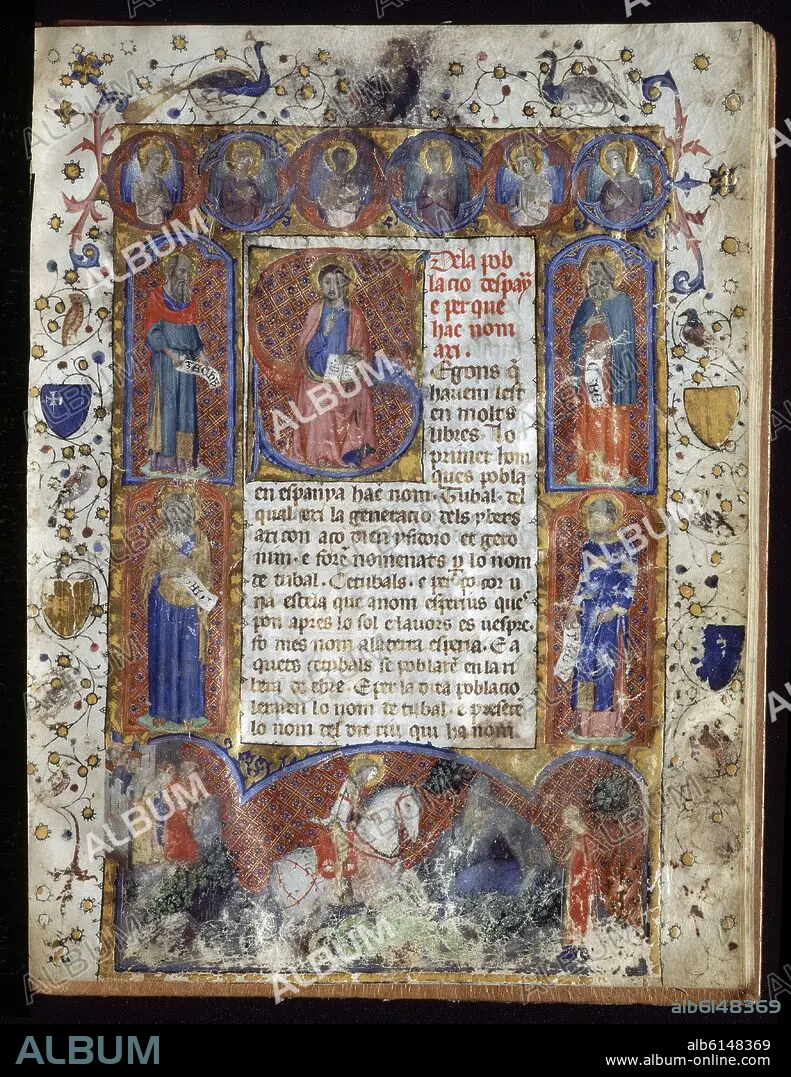 De la pob
lacio despaÿ
e per que
hac nom
ari.
Egons q̃
havem lest
en molts
libres. Lo
primer hom
ques pobla
en espanya hac nom. Tubal. del
qual exi la generacio dels ybers
axi con aço dien ysidoro et gero
nim. e forẽ nomenats p̱ lo nom
de tubal. Cetubals. e
na estela que a nom esperius ques
pon apres lo sol e lauors es uespre.
fo mes nom ala terra esperia. E a
quets cetubals se poblarẽ en la ri
bera de ebre. E per la dita poblacio
leuaren lo nom de tubal. e
lo nom del dit riu qui ha nom
ALBUM
alb6148369
ALBUM
alb6148369
www.album-online.com